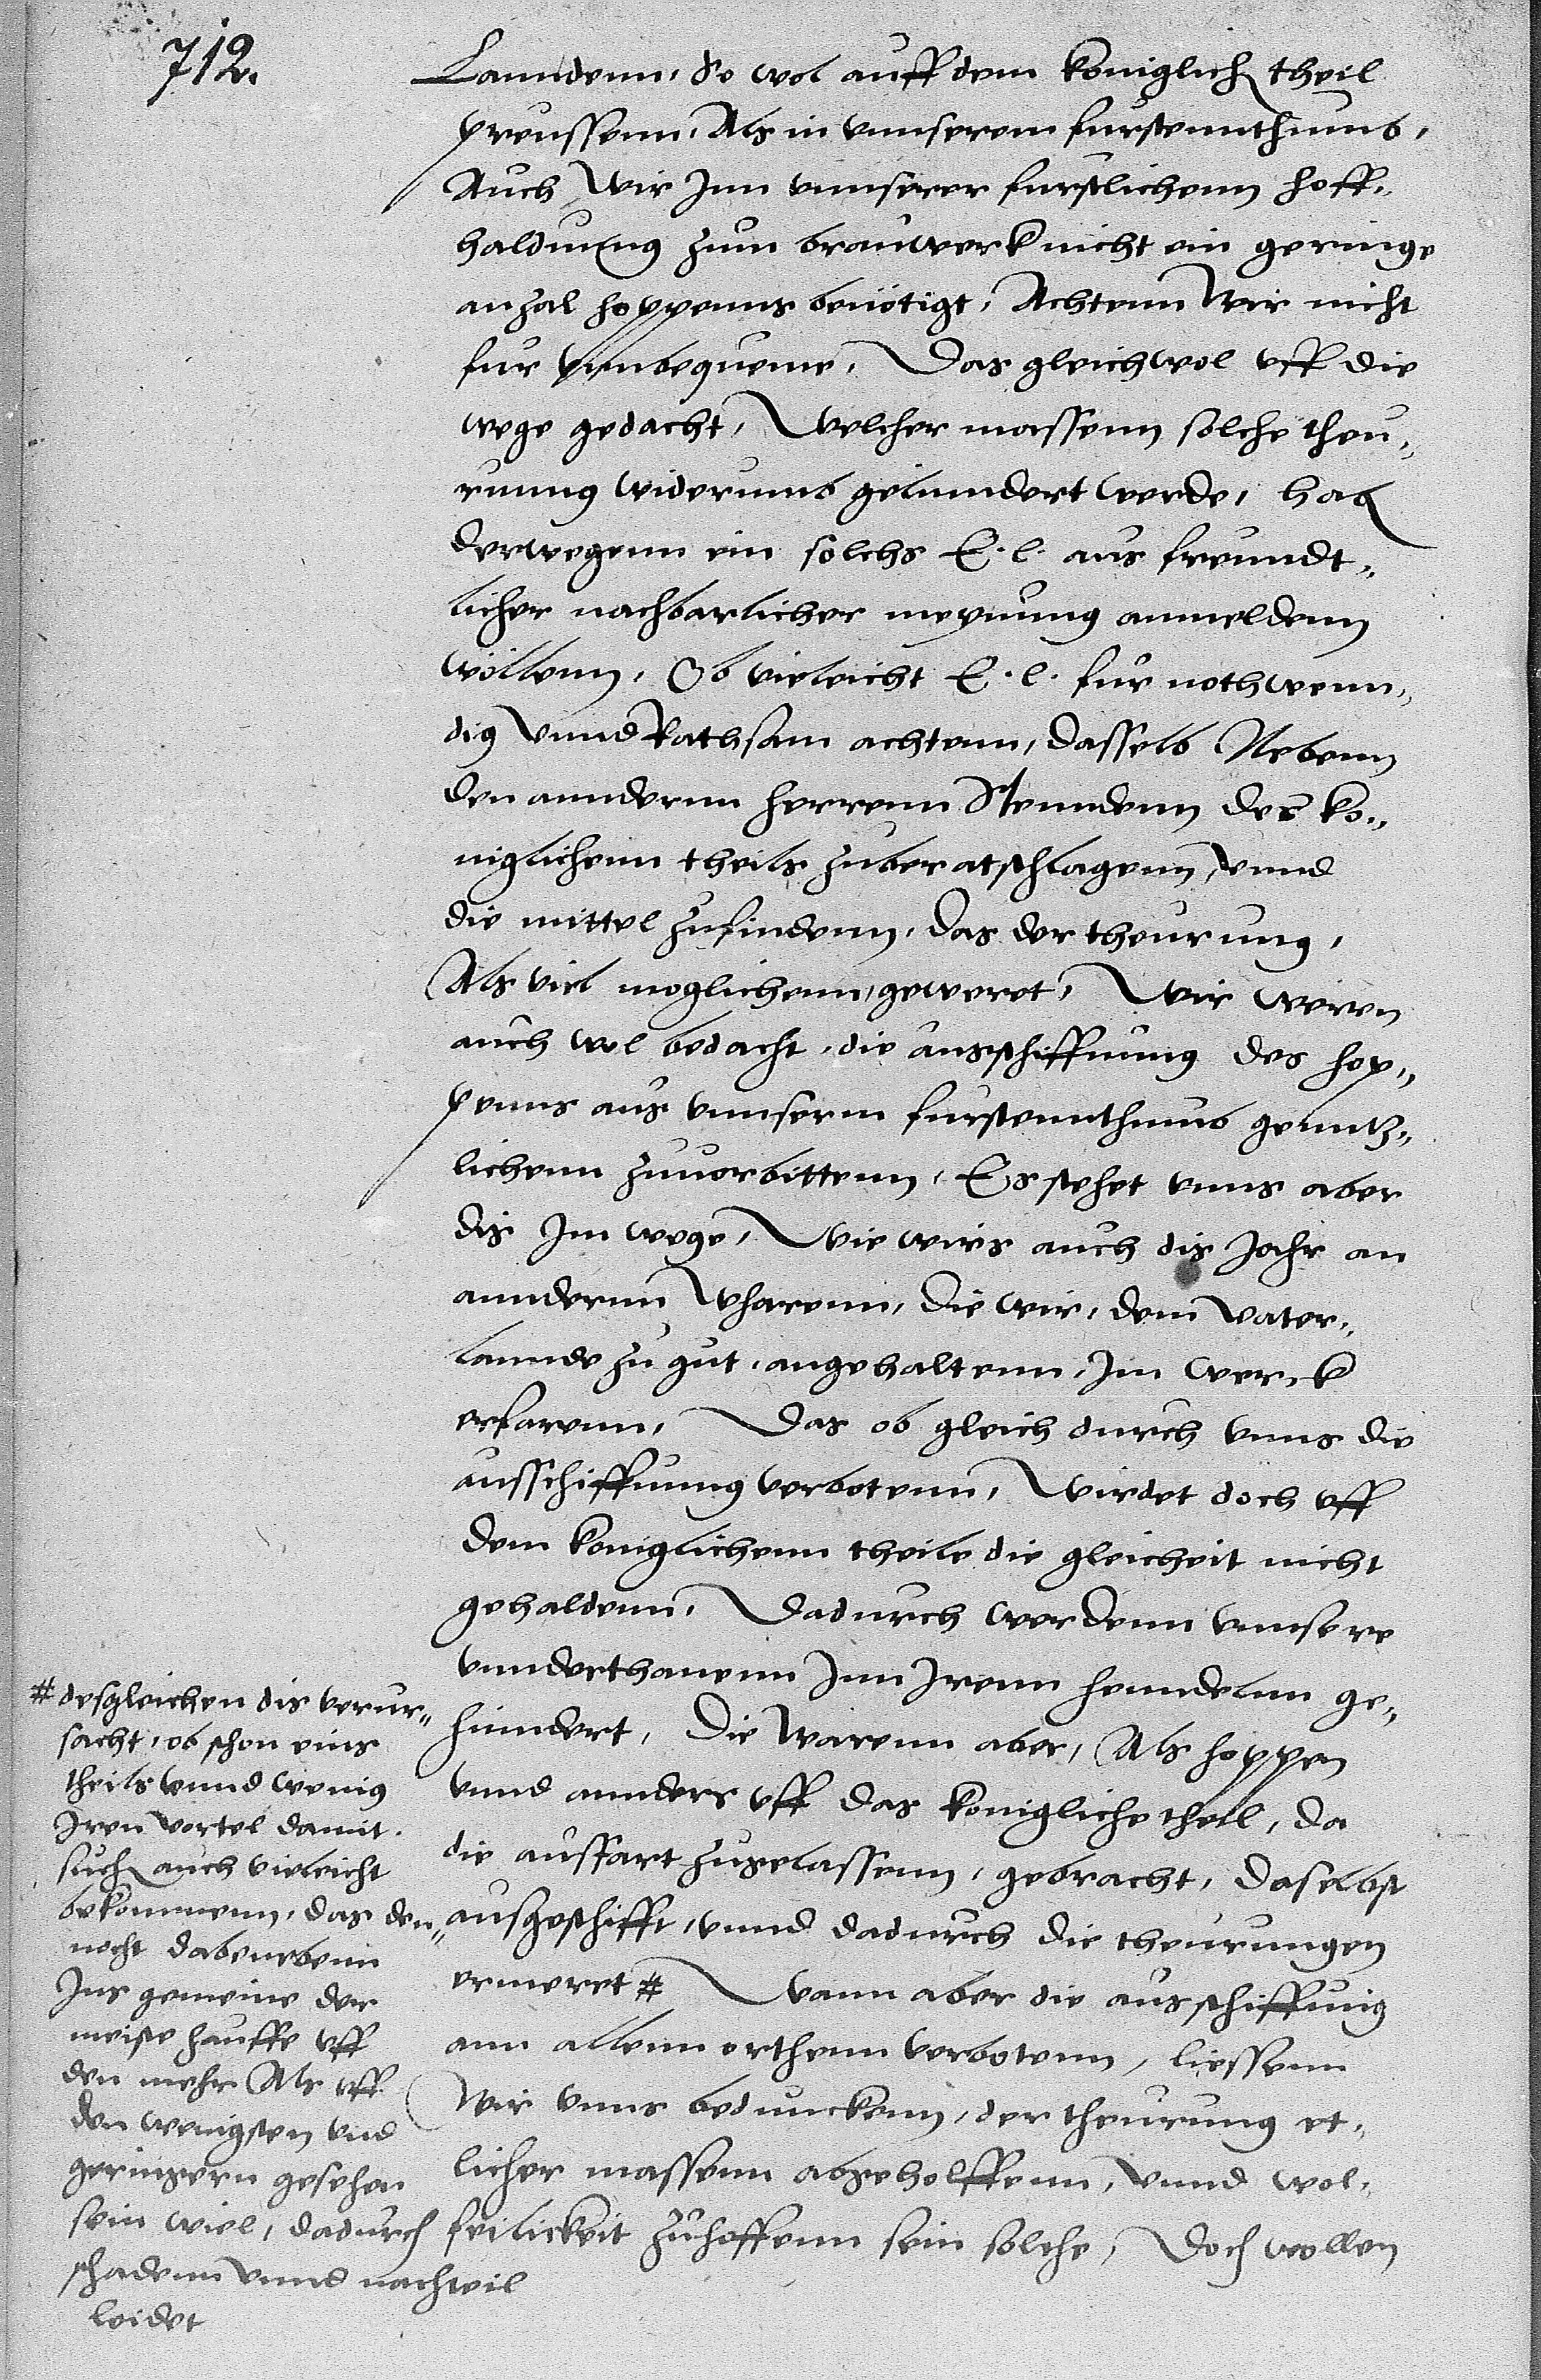 712.
Lanndenn, So wol auff dem koniglich theil
preussenn, Als in vnnserem furstennthumb,
Auch Wir Jnn vnnserer furstlichenn hoff-
haldunng zum brauwerk nicht ein geringe
anzal hoppenns benötigt, Achtenn Wir nicht
fur vnbequeme, Das gleichwol vff die
wege gedacht, Welcher massenn solche theu-
runng widerumb gelinndert werde, hab
derwegenn ein solchs E. l. aus freundt-
licher nachbarlicher meynung anmeldenn
wöllenn, Ob vieleicht E. l. fur nothwenn-
dig vnnd Rathsam achtenn, dasselb Nebenn
den annderenn herrenn Stenndenn des ko-
niglichenn theils zuberatschlagenn, vnnd
die mittel zufindenn, das der theurung,
Als viel moglichenn, geweret, Wir weren
auch wol bedacht, die ausschiffunng des hop-
penns aus vnnserm furstennthumb genntz-
lichenn zuuorbittenn, Es stehet vnns aber
dis Jm wege, Wie wirs auch dis Johr an
annderenn Wharenn, die wir, dem vater-
lannde zu gut, angehaltenn, Jm werck
erfarenn, Das ob gleich durch vnns die
ausschiffunng verbotenn, Wirdet doch vff
dem koniglichenn theile die gleicheit nicht
gehaldenn, Dadurch werdenn vnnsere
vnnderthanenn Jnn Jrenn henndelnn ge-
hinndert, Die Warenn aber, Als hoppen
vnnd annders vff das konigliche theil, da
die ausfart zugelassenn, gebracht, daselbst
ausgeschifft, vnnd dadurch die theurungen
ermeret # Wann aber die ausschiffung
ann allenn orthenn verbotenn, liessenn
Wir vnns beduncken, der theurung et-
licher massenn abgeholffenn, vnnd wol-
feilickeit zuhoffenn sein solche, Doch wollen
# desgleichen dis verur-
sacht, ob schon eins
theils vnnd wenig
Jren vortel damit
such auch vieleicht
bekommenn, das den-
nocht dabenebenn
Jns gemeine der
meiste hauffe vff
den mehr Als vff
den wenigsten vnd
geringern gesehen
sein wiel, dadurch
schadenn vnnd nachteil
leidet